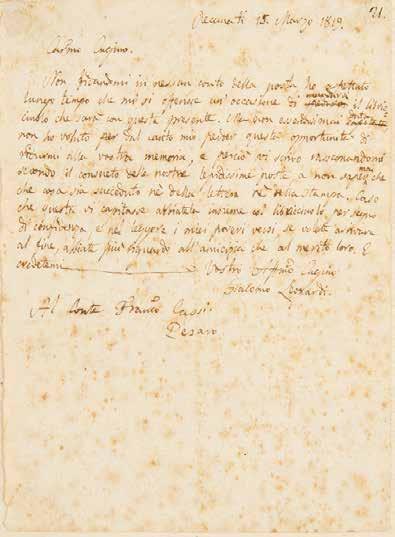 21.
Recanati 15. Marzo 1819.
Carmo Cugino.
Non fidandomi in nessun conto della posta ho aspettato
lungo tempo che mi si offerisse un'occasione di il libric-
ciuolo che sarà con questa presente. Ma non
non ho voluto per dal canto mio perder questa opportunità di
ridurmi alla vostra memoria, e perciò vi scrivo rassegnandomi
secondo il consueto delle nostre lepidissime poste a non saper mai
che cosa sia succeduto nè della lettera nè della stampa. Caso
che questa vi capitasse abbiatela insieme col libricciuolo per segno
di confidenza, e nel leggere i miei poveri versi se volete arrivare
al fine, abbiate più riguardo all'amicizia che al merito loro. E
credetemi
Vostro Affmo Cugino
Giacomo Leopardi.
Al Conte Franco Cassi
Pesaro